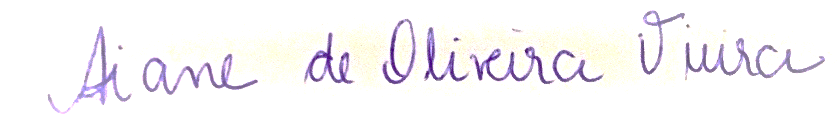 Aiane de Oliveira Vieira